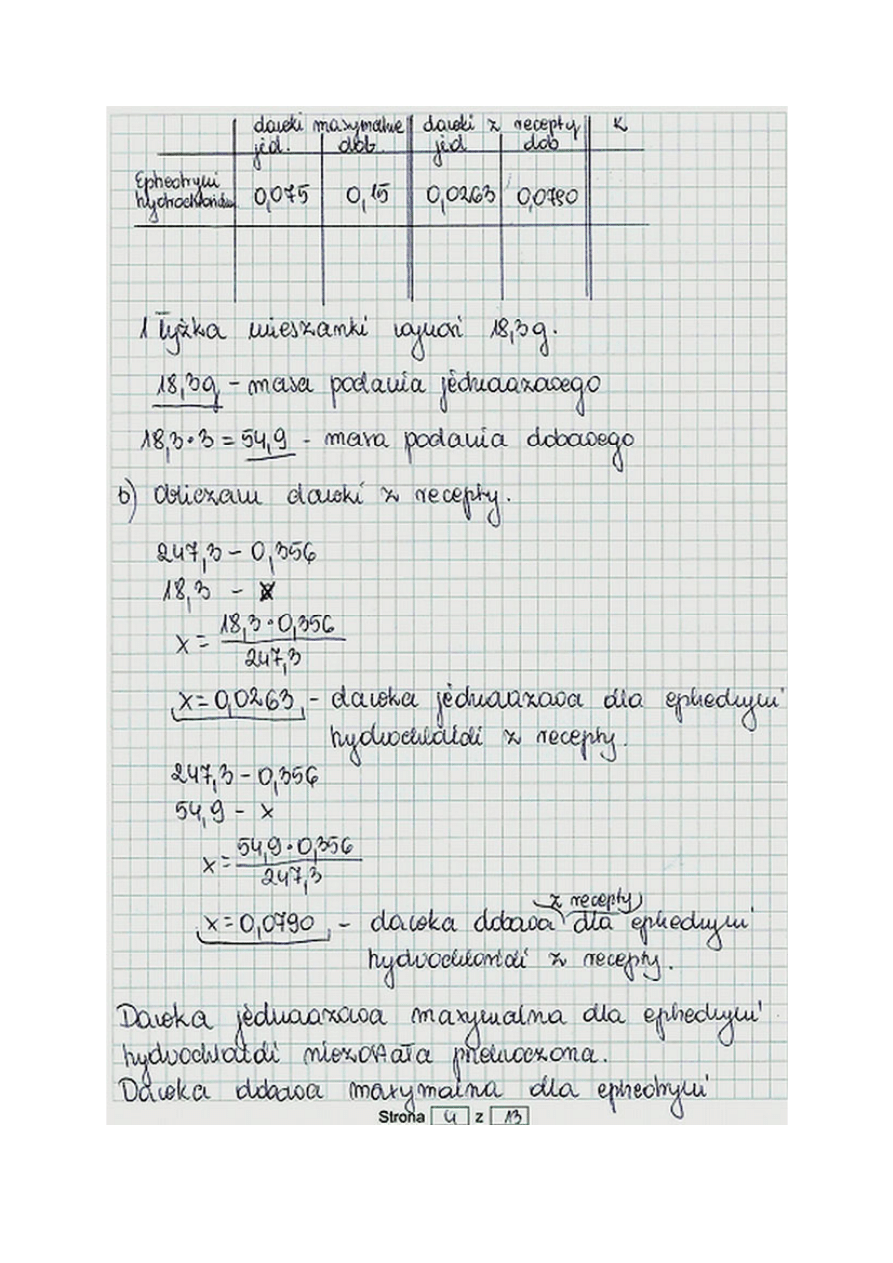 dawki maxymalne dawki z recepty K
jed. dob. jed dob
Ephedryni
hydrochloridum 0,075 0,15 0,0263 0,0790
1 łyżka mieszanki wynosi 18,3g.
18,3g - masa podania jednorazowego
18,3 · 3 = 54,9 - masa podania dobowego
b) Obliczam dawki z recepty.
247,3 - 0,356
18,3 - x
x = 18,3 · 0,356
247,3
x = 0,0263 - dawka jednorazowa dla ephedryni
hydrochloridi z recepty.
247,3 - 0,356
54,9 - x
x = 54,9 · 0,356
247,3
z recepty
x = 0,0790 - dawka dobowa dla ephedryni
hydrochloridi z recepty.
Dawka jednorazowa maxymalna dla ephedryni
hydrochloridi niezostała przekroczona.
Dawka dobowa maxymalna dla ephedryni
Strona 4 z 13